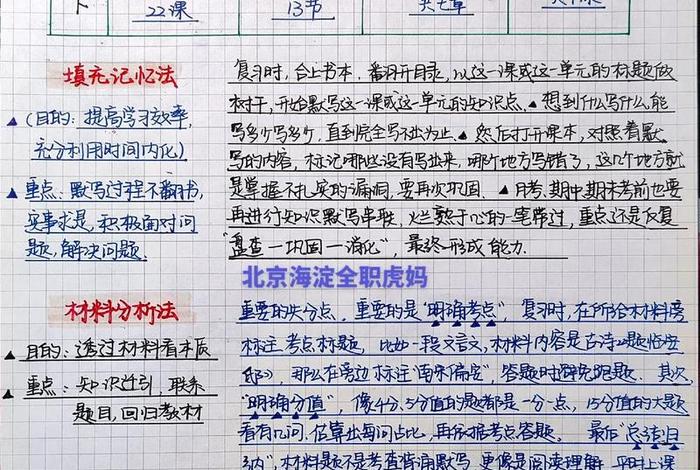 22课
13节
填充记忆法
▲(目的:提高学习效率,
充分利用时间内化)
▲重点:默写过程不翻书,
实事求是,积极面对问
题,解决问题.
复习时,合上书本,翻开目录,以这一课或这一单元的标题做
树干,开始默写这一课或这一单元的知识点.▲想到什么写什么,能
写多少写多少,直到完全写不出为止.▲然后打开课本,对照着默
写的内容,标记哪些没有写出来,哪个地方写错了,这几个地方就
是掌握不扎实的漏洞,要再次巩固.▲月考、期中期末考前也要
再进行知识默写串联,烂熟于心的一笔带过,重点还是反复
"盘查一巩固一消化",最终形成能力.
北京海淀全职虎妈
材料分析法
▲目的:透过材料看本质
▲重点:知识迁引,联系
题目,回归教材
重要的失分点,重要的是"明确考点",复习时,在所给材料旁
标注考点标题,比如一段文言文,材料内容是古诗《题临安
邸》,那么在旁边标注"南宋偏安",答题时避免跑题.其次
"明确分值",像4分、5分值的题都是一分一点,15分值的大题
看有几问,估算出每问占比,再依据考点答题.最后"总结归
纳",材料题不是考查背诵默写,更像是阅读理解,